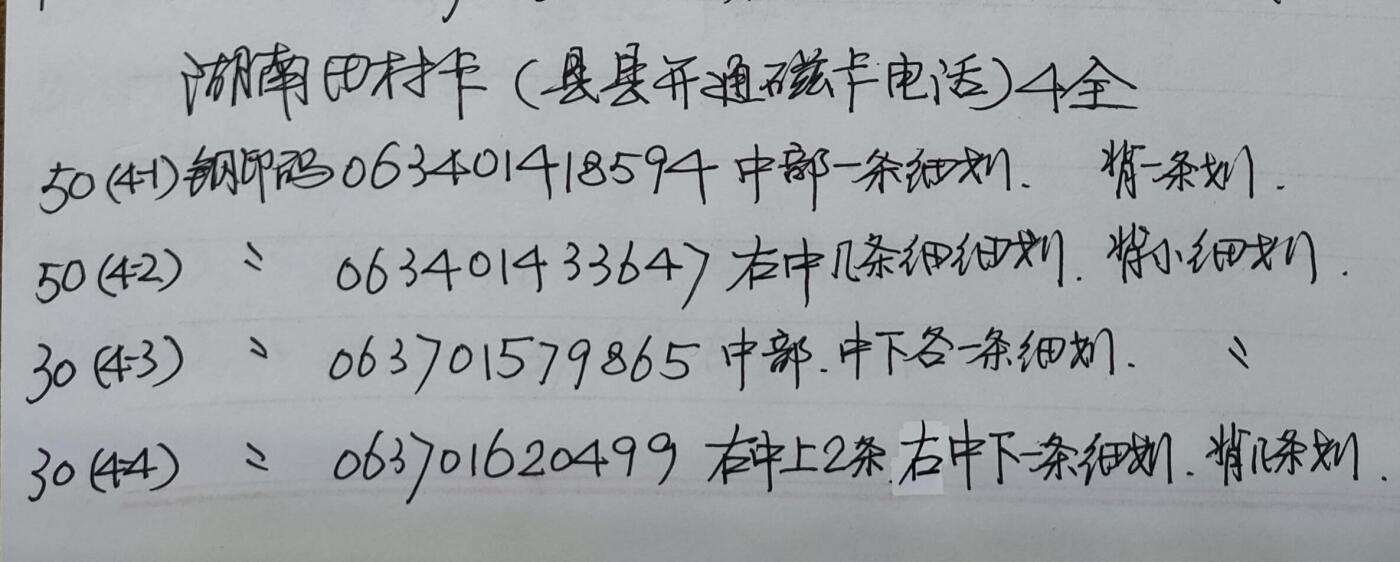 湖南田村卡(县县开通磁卡电话)4全
50(4-1)钢印码063401418594中部一条细划. 背一条划.
50(4-2) 〃 063401433647右中几条细细划. 背小细划.
30(4-3) 〃 063701579865中部.中下各一条细划. 〃
30(4-4) 〃 063701620499右中上2条.右中下一条细划.背几条划.